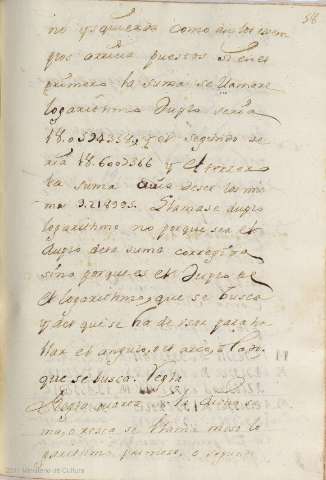 58
no ysquierda como en los exem
plos arriva puestos si en el
primero la suma se llamare
logarithmo Duplo seria
18.0594334, y el segundo se
ria 18.6007366 y el tercero
la suma avia de ser la mis
ma 9.218995. Llamase duplo
logarithmo no porque sea el
duplo de la suma corregida
sino porque es el Duplo de
el logarithmo, que se busca
y del que se ha de usar para ha
llar el angulo, o el arco, o lado
que se busca. Regla
Regla quarta la dicha su
ma, o resta se llama medio lo
garithmo primero, o segundo
2011 Ministerio de Cultura